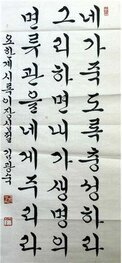 네가죽도록충성하라
그리하면내가생명의
면류관을네게주리라
요한계시록이장십절